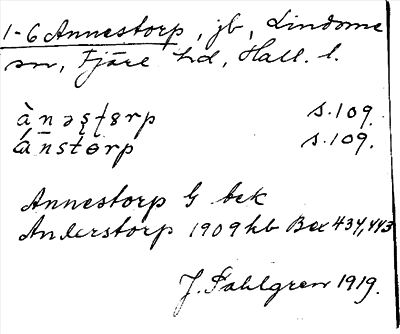 1-6 Annestorp, jb, Lindome
sn, Fjäre hd, Hall. l.
ànəʂʈɵrp s. 109.
ánstɵrp s. 109.
Annestorp G bek
Anderstorp 1909 hb Bex 434,443
J. Sahlgren 1919.